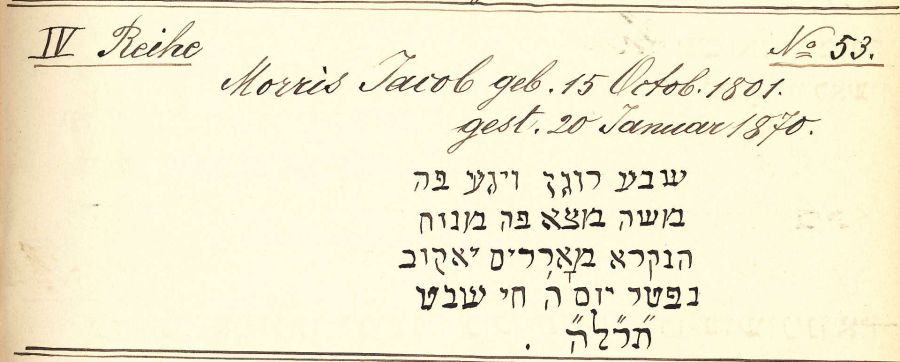 IV Reihe
No 53.
Morris Jacob geb. 15 Octob. 1801.
gest. 20 Januar 1870.
שבע רוגז ויגע פה
משה מצא פה מנוח
הנקרא מאָרריס יאקוב
נפטר יום ה' חי שבט
ת״ר״ל״ה .